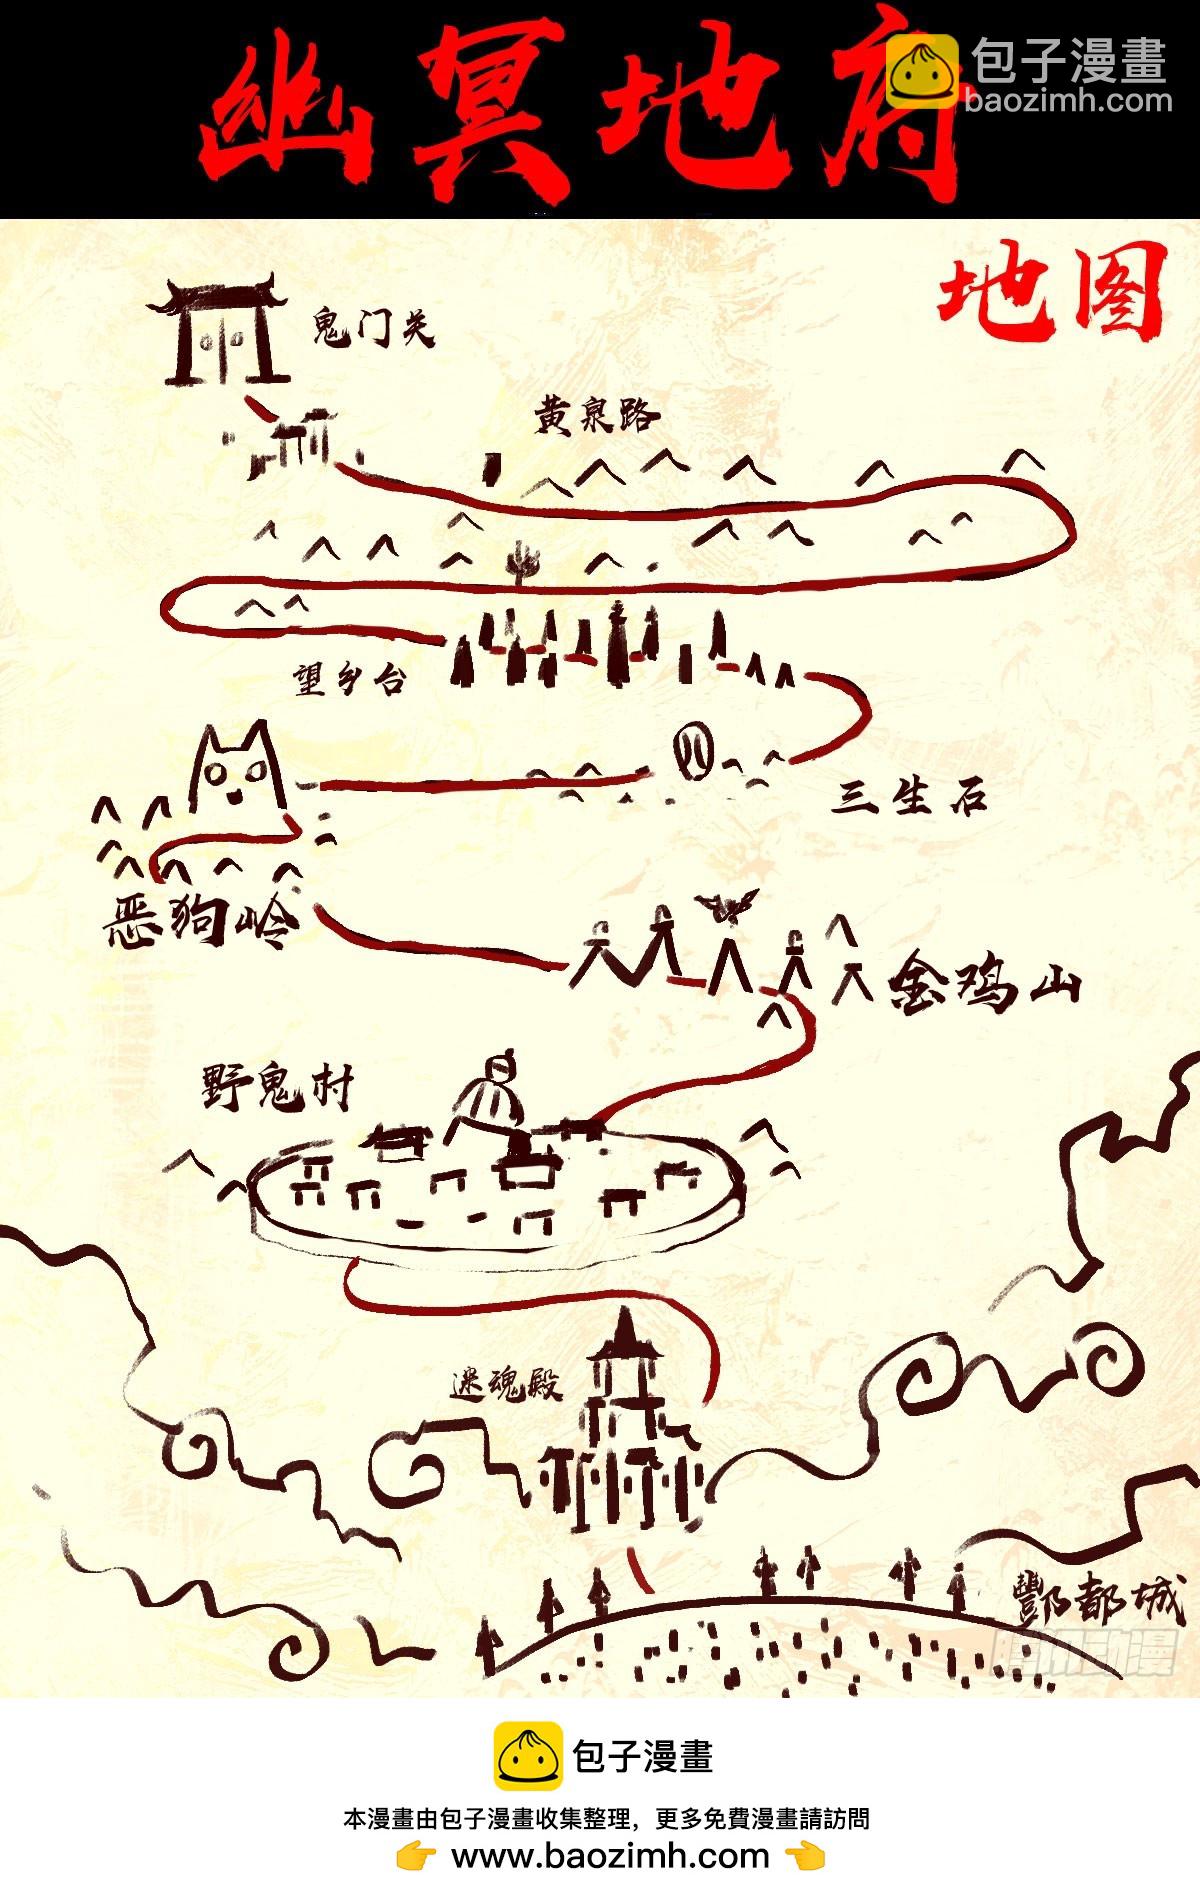 幽冥地府
包子漫畫
baozimh.com
地图
鬼门关
黄泉路
望乡台
三生石
恶狗岭
金鸡山
野鬼村
迷魂殿
酆都城
腾讯动漫
包子漫畫
本漫畫由包子漫畫收集整理，更多免費漫畫請訪問
👉 www.baozimh.com 👈